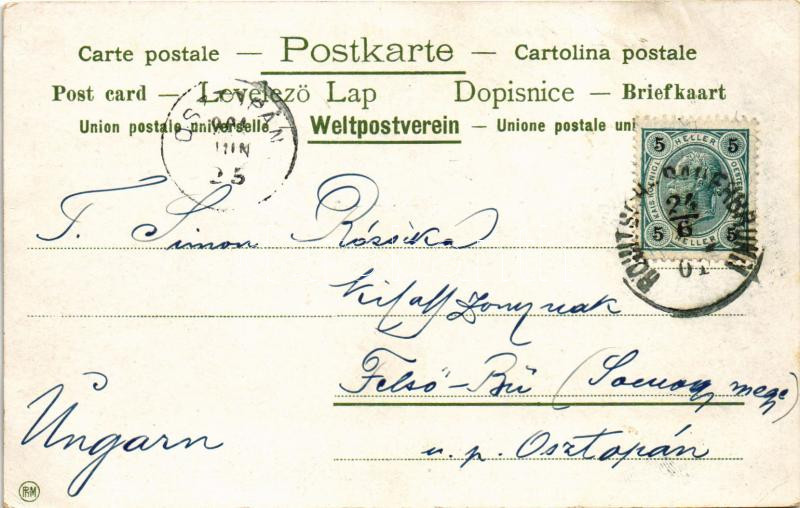 Carte postale — Postkarte — Cartolina postale
Post card — Levelező Lap Dopisnice — Briefkaart
Union postale universelle — Weltpostverein — Unione postale uni
OSZTOPÁN
901
JUN
25
5 HELLER 5
KAIS. KOENIGL. OESTERR. POST
5 HELLER 5
ROHITSCH-SAUERBRUNN
24
6
01
T. Simon Rózsika
Felső-Bű (Somogy megye)
Ungarn
u. p. Osztopán
PRM